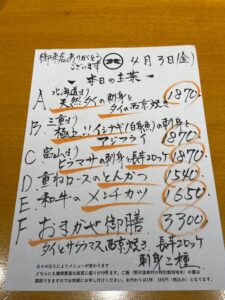 御来店ありがとう
ございます
4月3日(金)
本日の主菜
A 北海道より
天然タイの刺身と
タイの西京焼き 1870-
B 三重より
極上!!イシナギ(白身魚)の刺身と
アジフライ 1870-
C 富山より
ヒラマサの刺身と長芋コロッケ 1870-
D 重ねロースのとんかつ 1540-
E 和牛のメンチカツ 1650
F おまかせ御膳 3300
タイとサクラマス西京焼き、長芋コロッケ
刺身2種
日々の仕入によりメニューが変わります